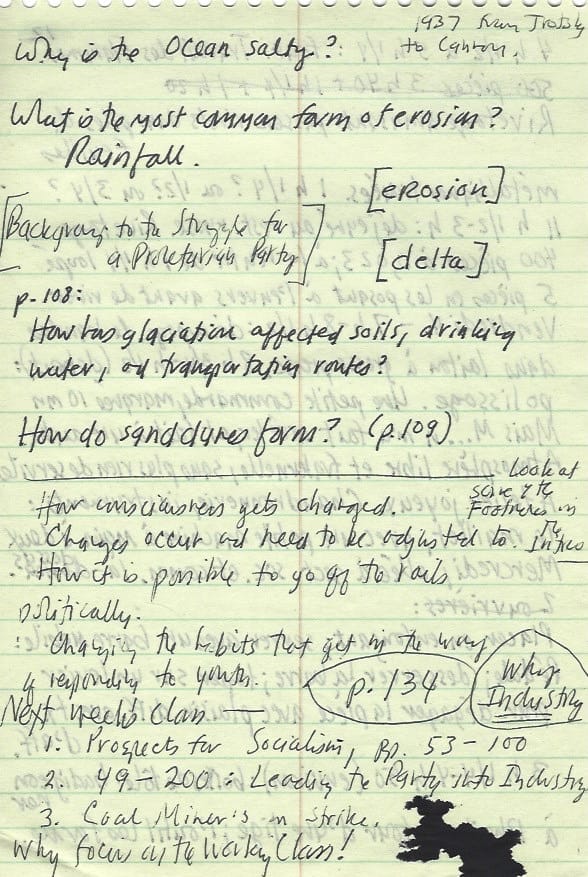 1937 from Trotsky
to Cannon,
Why is the Ocean salty?
What is the most common form of erosion?
Rainfall.
[erosion]
[Background to the Struggle for
a Proletarian Party]
[delta]
p. 108:
How has glaciation affected soils, drinking
water, and transportation routes?
How do sand dunes form? (p. 109)
Look at
some of the
Footnotes in
the
Intro
How consciousness gets changed.
Changes occur and need to be adjusted to.
How it is possible to go off the rails
politically.
Changing the habits that get in the way
of responding to youth.
p. 134
Why
Industry
Next week's class —
1. Prospects for Socialism, pp. 53 - 100
2. 49 - 200: Leading the Party into Industry
3. Coal Miner's on Strike.
Why focus on the Working Class!